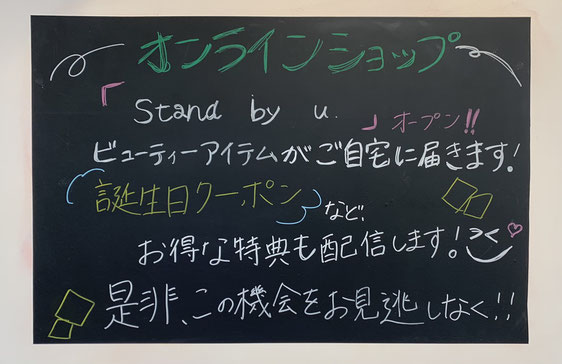 オンラインショップ
「Stand by u.」オープン!!
ビューティーアイテムがご自宅に届きます!
誕生日クーポンなど、
お得な特典も配信します!
是非、この機会をお見逃しなく!!